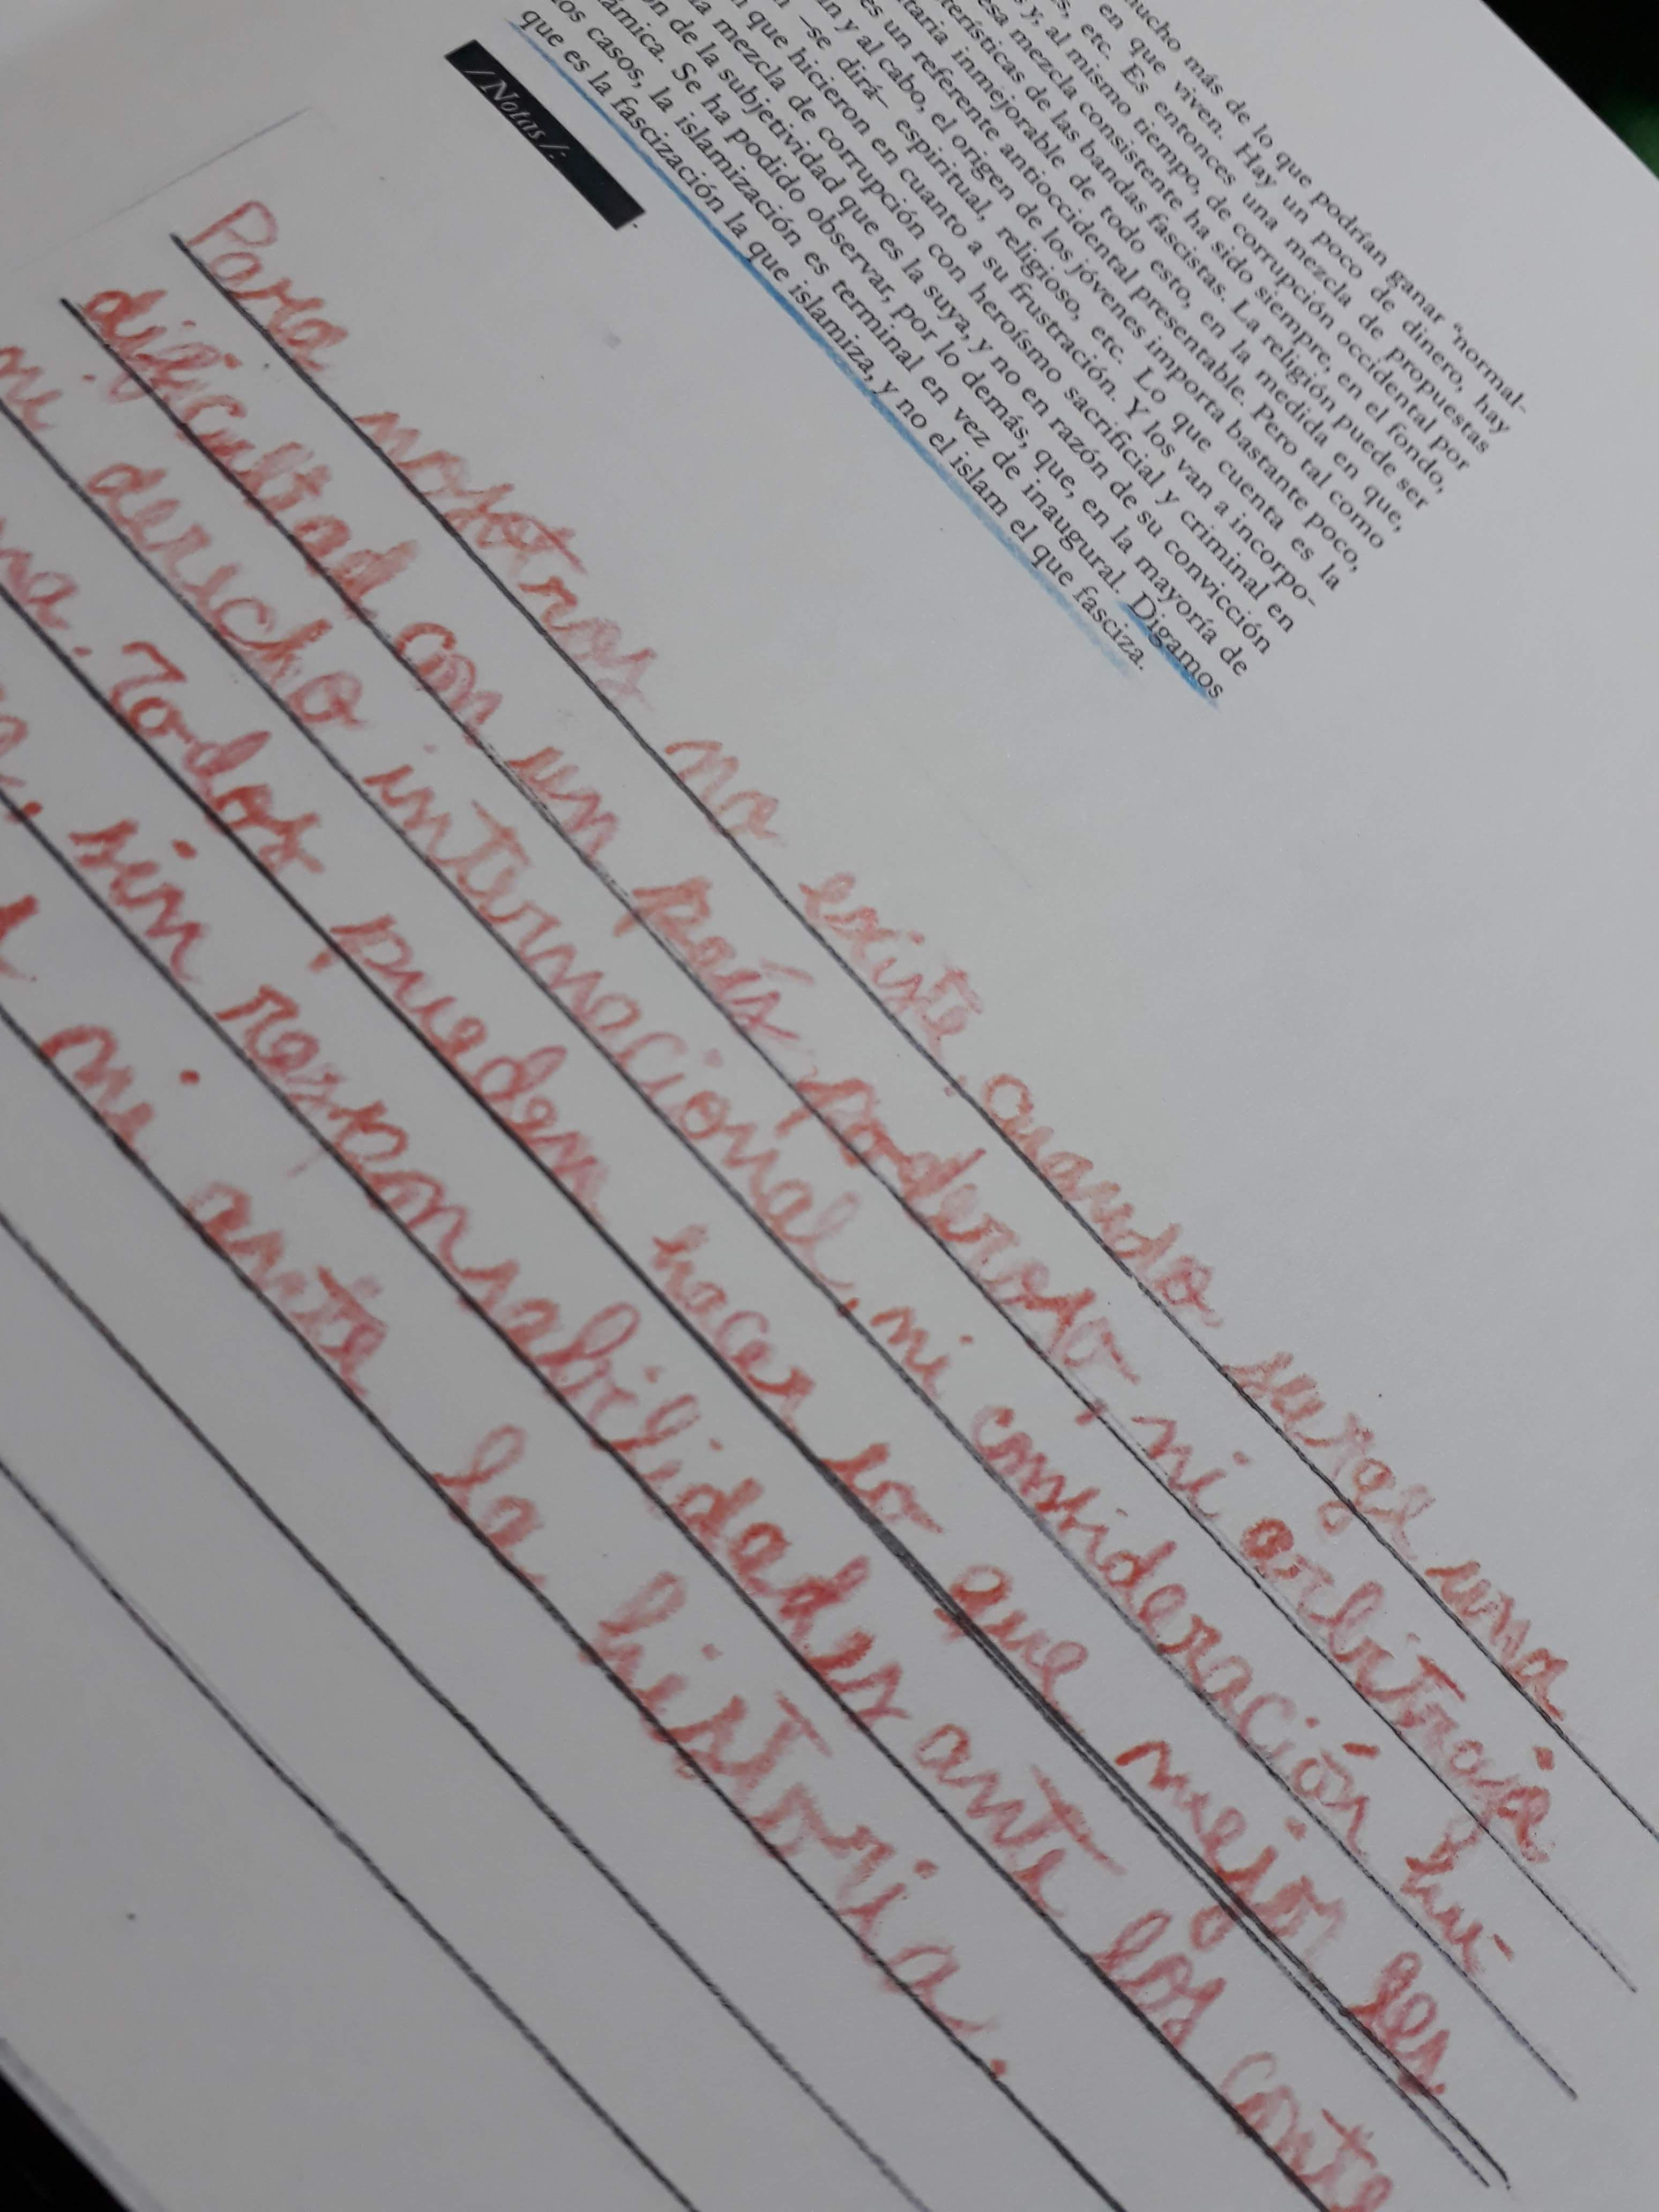 mucho más de lo que podrían ganar “normal-
en que viven. Hay un poco de dinero, hay
etc. Es entonces una mezcla de propuestas
y, al mismo tiempo, de corrupción occidental por
esa mezcla consistente ha sido siempre, en el fondo,
de las bandas fascistas. La religión puede ser
inmejorable de todo esto, en la medida en que,
es un referente antioccidental presentable. Pero tal como
y al cabo, el origen de los jóvenes importa bastante poco,
–se dirá– espiritual, religioso, etc. Lo que cuenta es la
que hicieron en cuanto a su frustración. Y los van a incorpo-
la mezcla de corrupción con heroísmo sacrificial y criminal en
de la subjetividad que es la suya, y no en razón de su convicción
Se ha podido observar, por lo demás, que, en la mayoría de
los casos, la islamización es terminal en vez de inaugural. Digamos
que es la fascización la que islamiza, y no el islam el que fasciza.
/ Notas /:
Para nosotros no existe, cuando surge una
dificultad con un país poderoso, ni arbitraje
ni derecho internacional, ni consideración hu-
mana. Todos pueden hacer lo que mejor les
sin responsabilidades ante los conte
ni ante la historia.